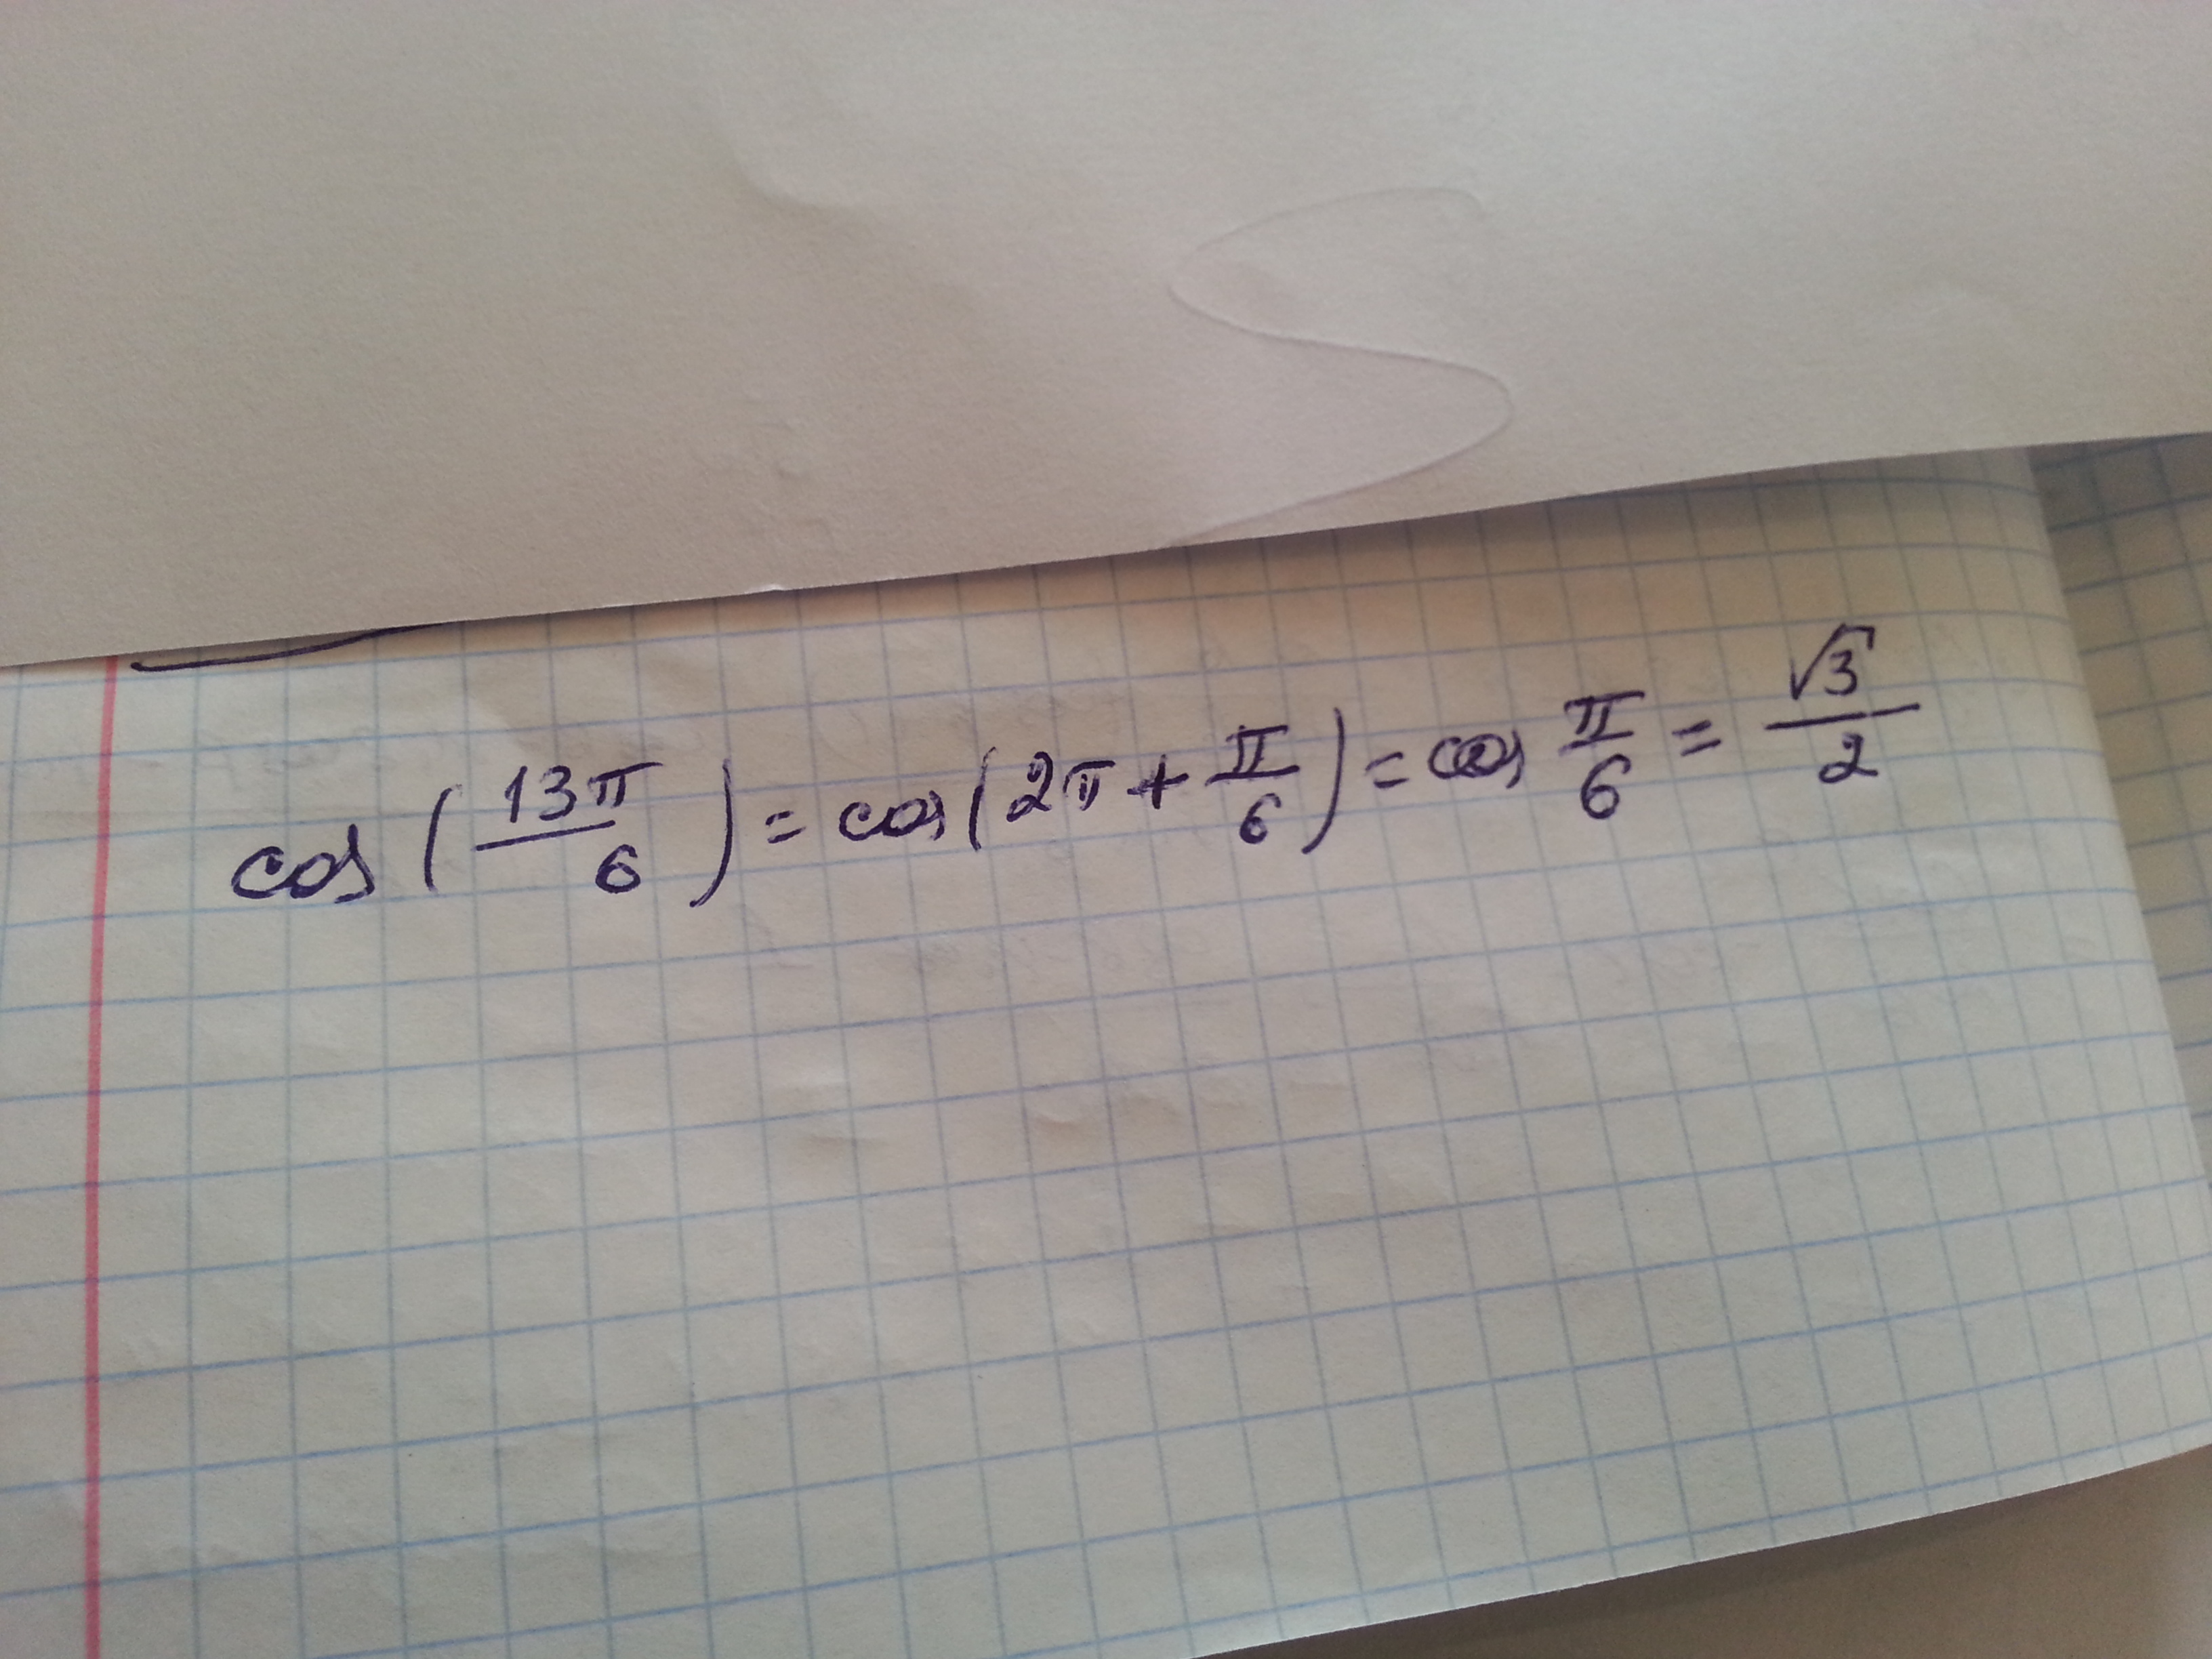 cos(13π/6) = cos(2π + π/6) = cos π/6 = √3/2